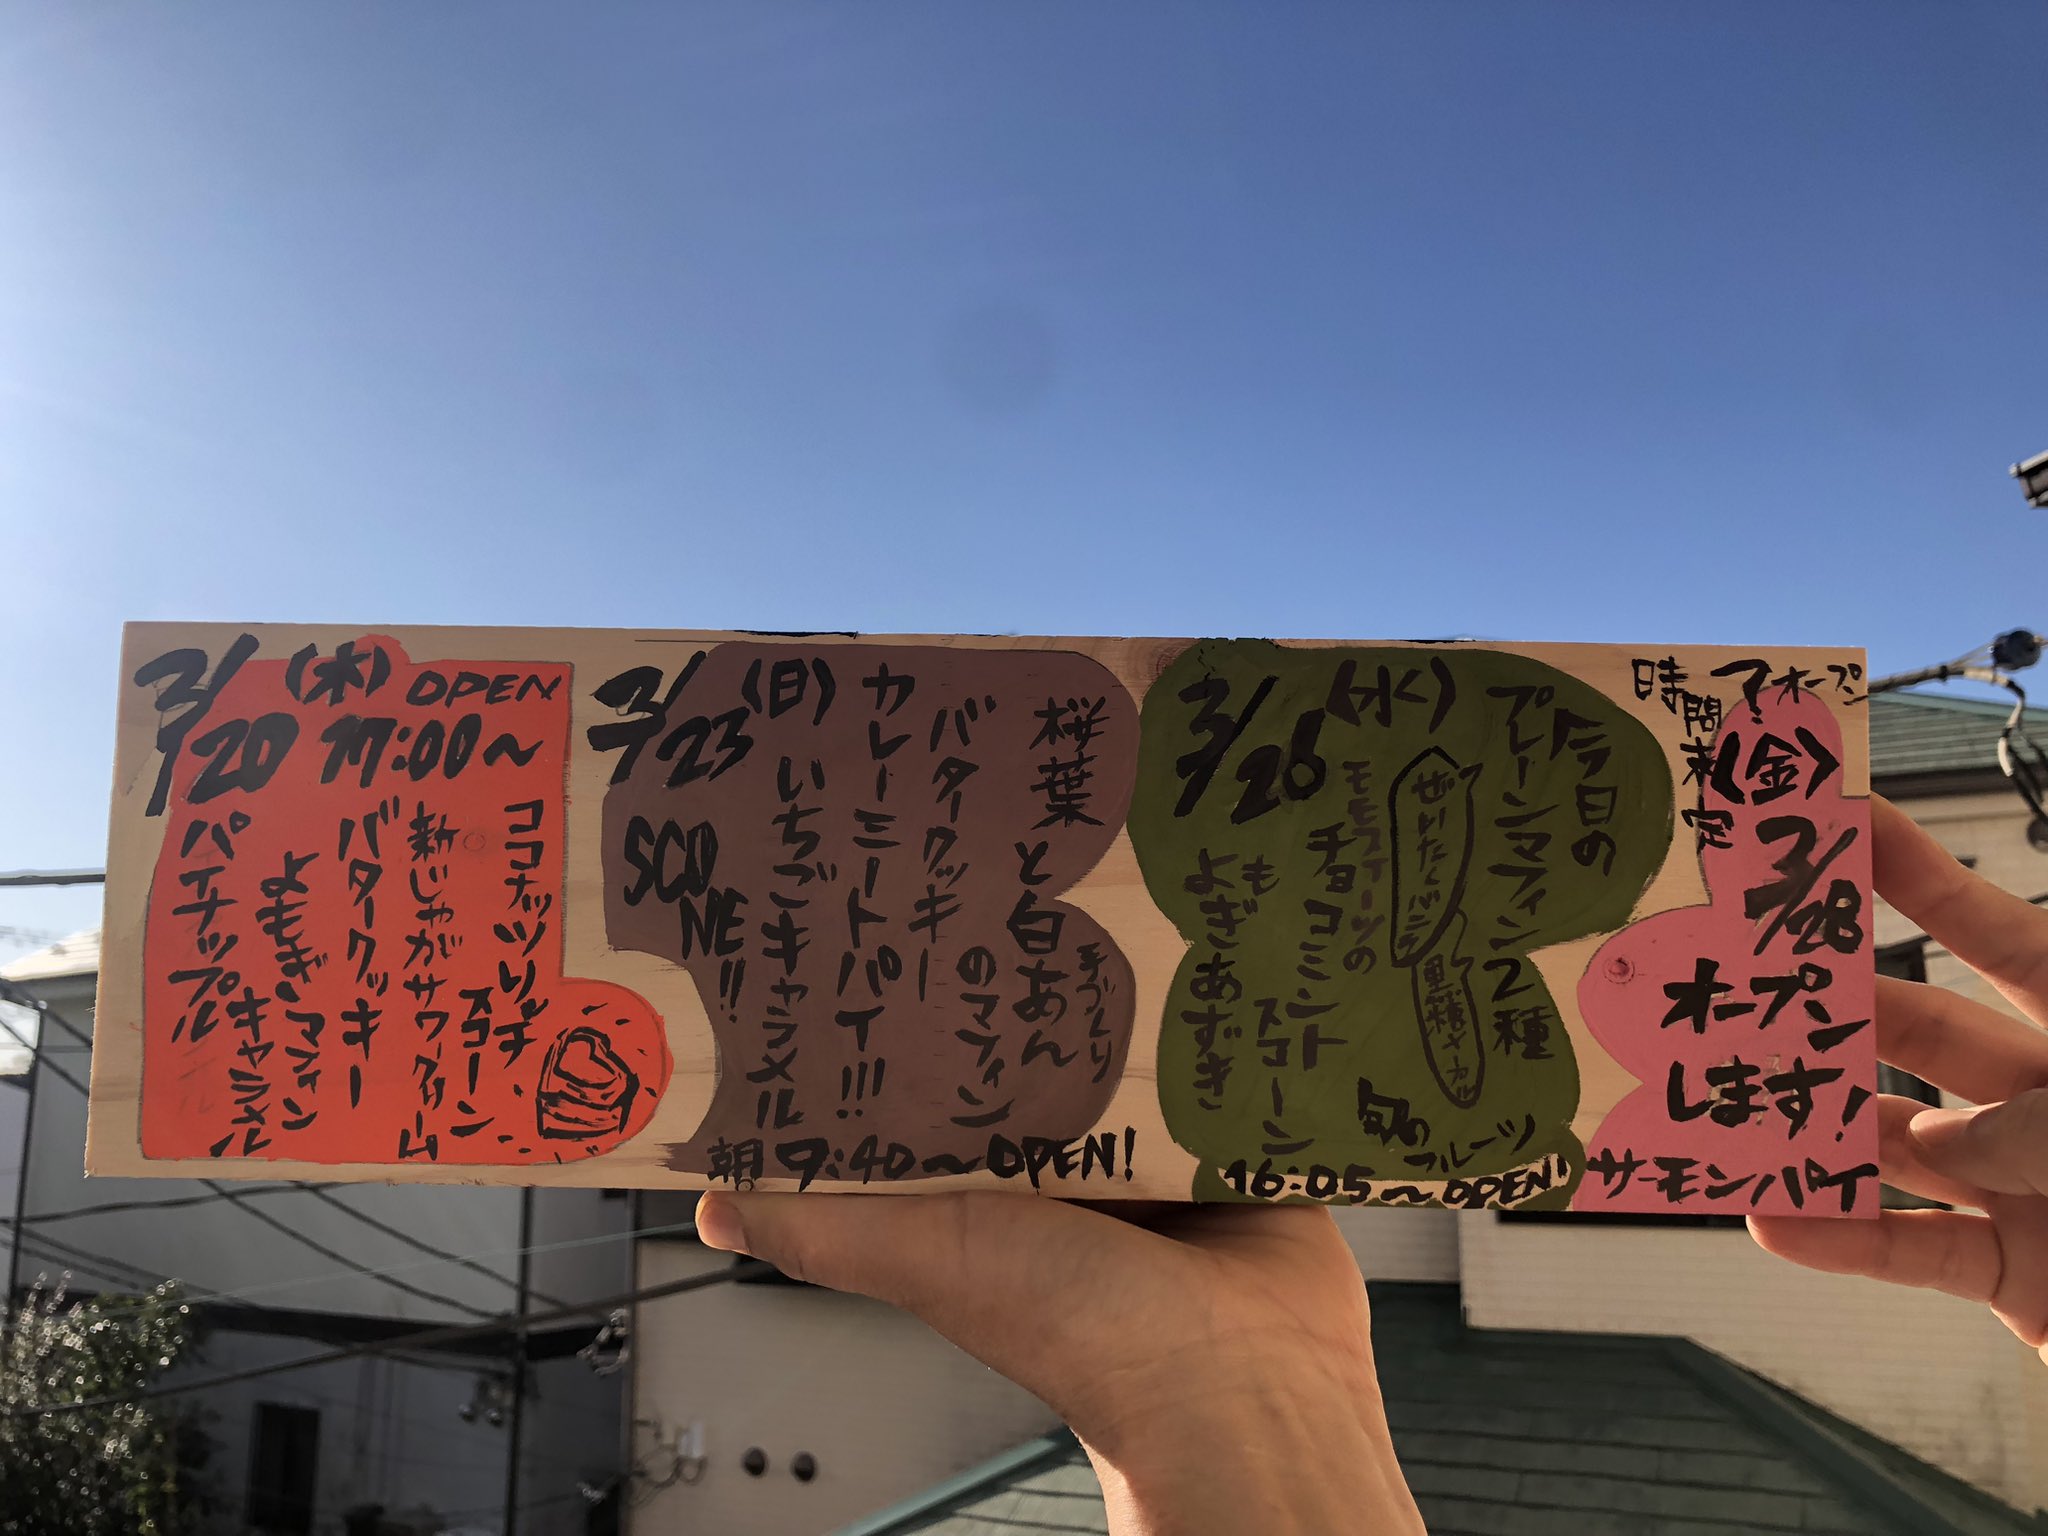 3/20
(木)
OPEN
17:00〜
ココナッツリッチ
スコーン
新じゃがサワークリーム
バタークッキー
よもぎマフィン
キャラメル
パイナップル
3/23
(日)
SCONE!!
桜葉と白あん
手づくり
のマフィン
バタークッキー
カレーミートパイ!!!
いちごキャラメル
朝9:40〜OPEN!
3/26
(水)
今日の
プレーンマフィン2種
ぜいたくバニラ
黒糖
旬のフルーツ
モモスイーツの
チョコミント
スコーン
よもぎあずき
16:05〜OPEN!
時間未定
オープン
(金)
3/28
オープン
します!
サーモンパイ